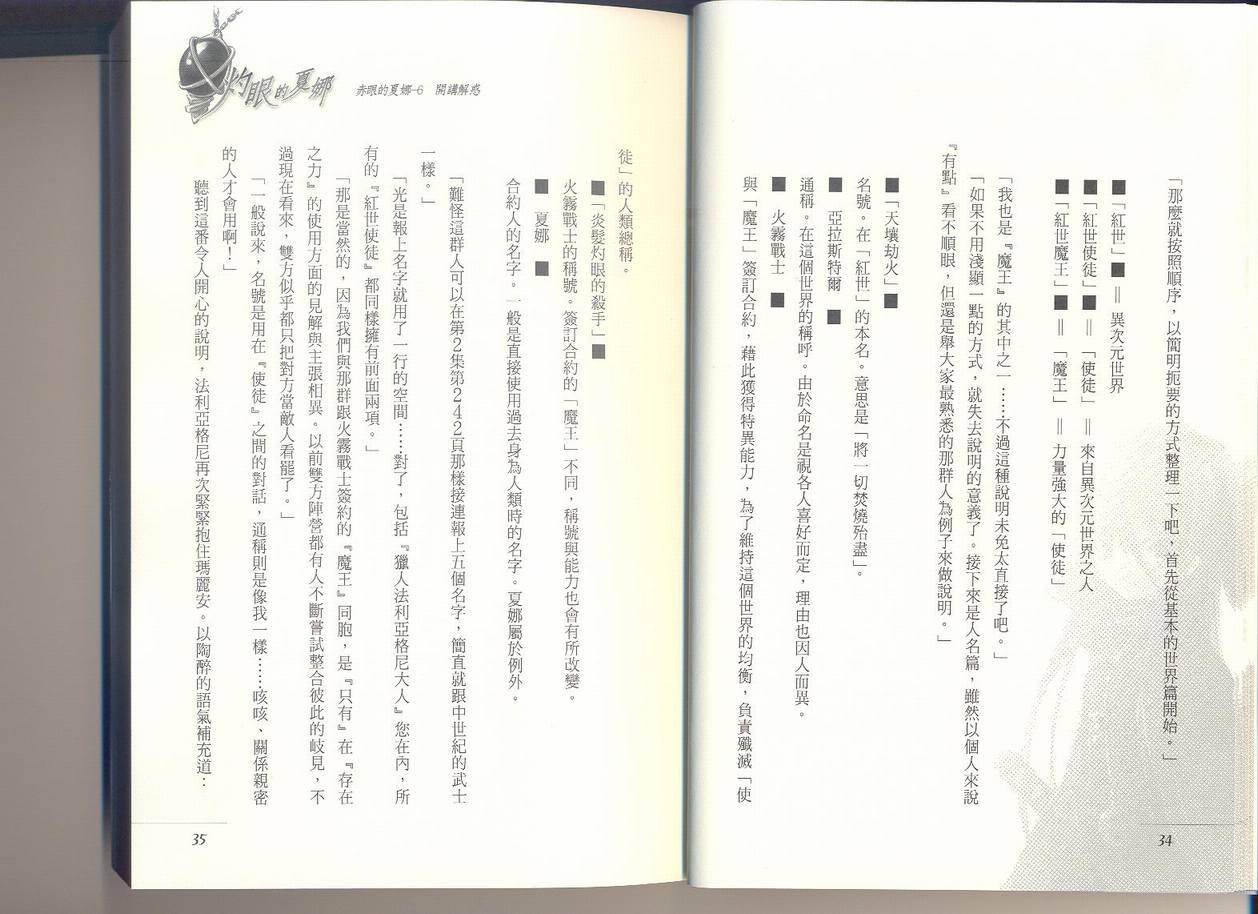 「那麼就按照順序，以簡明扼要的方式整理一下吧，首先從基本的世界篇開始。」
■「紅世」■＝異次元世界
■「紅世使徒」■＝「使徒」＝來自異次元世界之人
■「紅世魔王」■＝「魔王」＝力量強大的「使徒」
「我也是『魔王』的其中之一……不過這種說明未免太直接了吧。」
「如果不用淺顯一點的方式，就失去說明的意義了。接下來是人名篇，雖然以個人來說
『有點』看不順眼，但還是舉大家最熟悉的那群人為例子來做說明。」
■「天壤劫火」■
名號。在「紅世」的本名。意思是「將一切焚燒殆盡」。
■　亞拉斯特爾　■
通稱。在這個世界的稱呼。由於命名是視各人喜好而定，理由也因人而異。
■　火霧戰士　■
與「魔王」簽訂合約，藉此獲得特異能力，為了維持這個世界的均衡，負責殲滅「使
34
灼眼的夏娜
赤眼的夏娜-6　開講解惑
徒」的人類總稱。
■「炎髮灼眼的殺手」■
火霧戰士的稱號。簽訂合約的「魔王」不同，稱號與能力也會有所改變。
■　夏娜　■
合約人的名字。一般是直接使用過去身為人類時的名字。夏娜屬於例外。
「難怪這群人可以在第2集第242頁那樣接連報上五個名字，簡直就跟中世紀的武士
一樣。」
「光是報上名字就用了一行的空間……對了，包括『獵人法利亞格尼大人』您在內，所
有的『紅世使徒』都同樣擁有前面兩項。」
「那是當然的，因為我們與那群跟火霧戰士簽約的『魔王』同胞，是『只有』在『存在
之力』的使用方面的見解與主張相異。以前雙方陣營都有人不斷嘗試整合彼此的岐見，不
過現在看來，雙方似乎都只把對方當敵人看罷了。」
「一般說來，名號是用在『使徒』之間的對話，通稱則是像我一樣……咳咳、關係親密
的人才會用啊！」
聽到這番令人開心的說明，法利亞格尼再次緊緊抱住瑪麗安。以陶醉的語氣補充道：
35